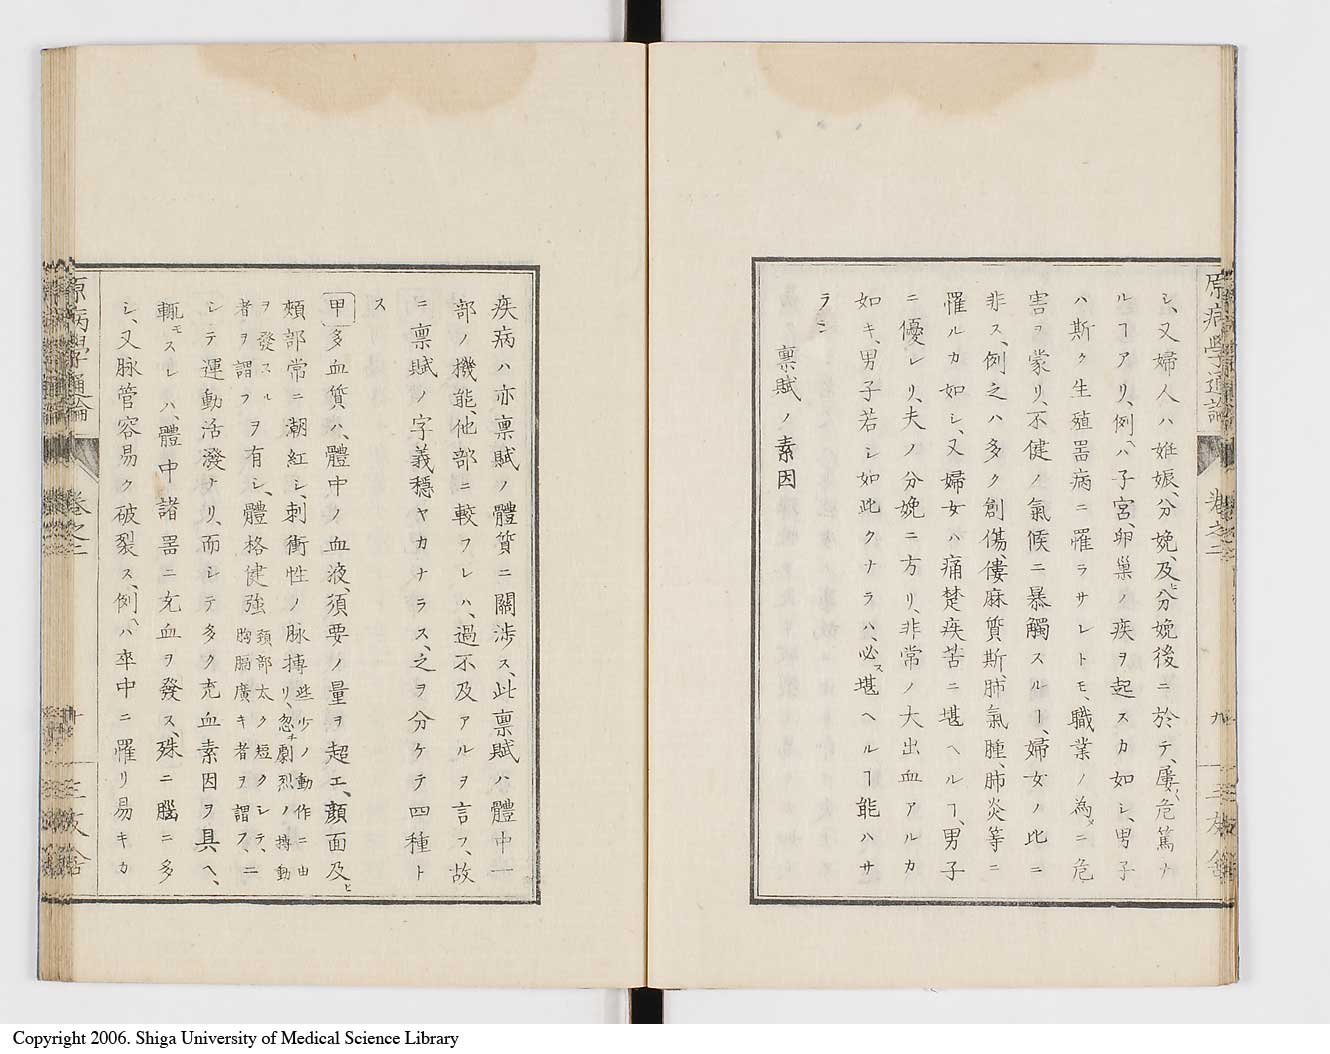 シ、又婦人ハ姙娠、分娩及ヒ分娩後ニ於テ、屢〻危篤ナ
ルヿアリ、例ヘハ子宮、卵巢ノ疾ヲ起スカ如シ、男子
ハ斯ク生殖噐病ニ罹ラサレトモ、職業ノ為メニ危
害ヲ蒙リ、不健ノ氣候ニ暴觸スルヿ、婦女ノ比ニ
非ス、例之ハ多ク創傷、僂麻質斯、肺氣腫、肺炎等ニ
罹ルカ如シ、又婦女ハ痛楚疾苦ニ堪ヘルヿ、男子
ニ優レリ、夫ノ分娩ニ方リ、非常ノ大出血アルカ
如キ、男子若シ如此クナラハ、必ス堪ヘルヿ能ハサ
ラン
禀賦ノ素因
疾病ハ亦禀賦ノ體質ニ關渉ス、此禀賦ハ體中一
部ノ機能、他部ニ較フレハ、過不及アルヲ言フ、故
ニ禀賦ノ字義穩ヤカナラス、之ヲ分ケテ四種ト
ス
甲 多血質ハ、體中ノ血液、須要ノ量ヲ超エ、顔面及ヒ
頰部常ニ潮紅シ、刺衝性ノ脉搏些少ノ動作ニ由リ、忽チ劇烈ノ搏動
ヲ發スル者ヲ謂フヲ有シ、體格健強頚部太ク短クシテ、胸膈廣キ者ヲ謂フ、ニ
シテ運動活潑ナリ、而シテ多ク充血素因ヲ具ヘ、
輒モスレハ、體中諸噐ニ充血ヲ發ス、殊ニ腦ニ多
シ、又脉管容易ク破裂ス、例ヘハ卒中ニ罹リ易キカ
原病學通論
卷之二
九
三友舍
原病學通論
卷之二
十
三友舍
Copyright 2006. Shiga University of Medical Science Library